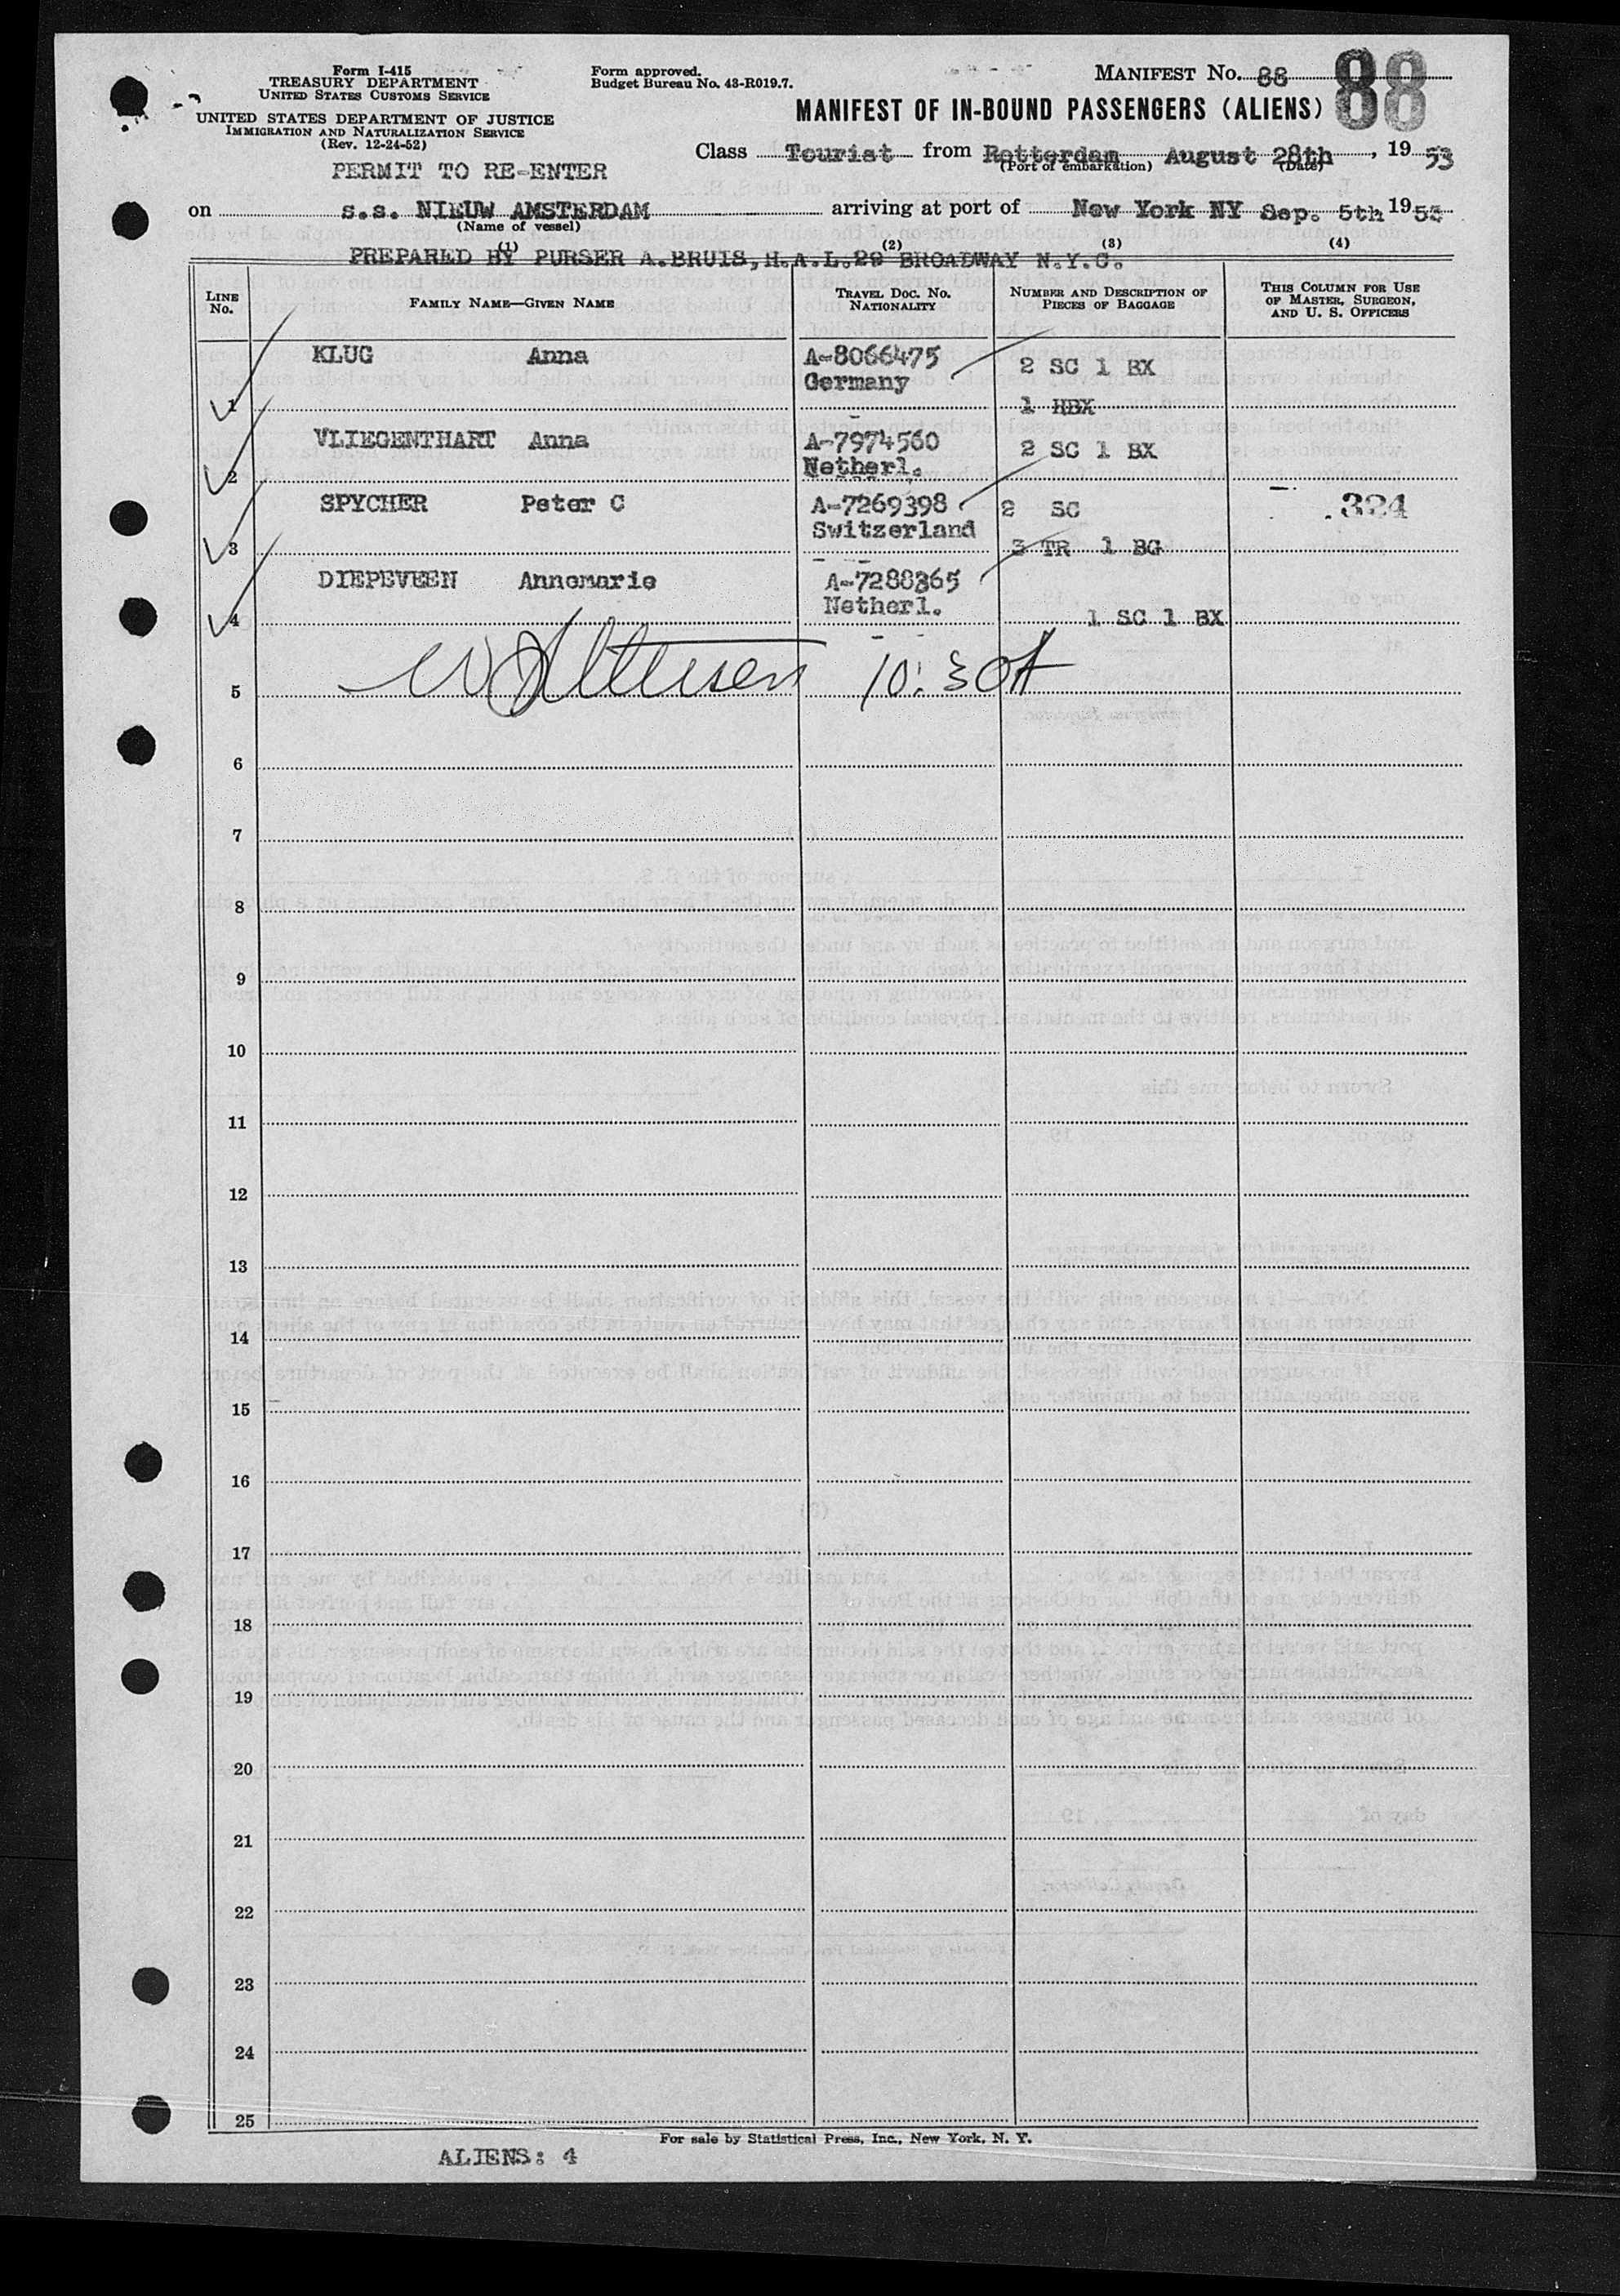 Form I-415
TREASURY DEPARTMENT
UNITED STATES CUSTOMS SERVICE
UNITED STATES DEPARTMENT OF JUSTICE
IMMIGRATION AND NATURALIZATION SERVICE
(Rev. 12-24-52)
Form approved.
Budget Bureau No. 43-R019.7.
MANIFEST No. 88
88
MANIFEST OF IN-BOUND PASSENGERS (ALIENS)
Class Tourist from Rotterdam August 28th, 1953
(Port of embarkation) (Date)
PERMIT TO RE-ENTER
on s.s. NIEUW AMSTERDAM arriving at port of New York NY Sep. 5th 1953
(Name of vessel)
(1) (2) (3) (4)
PREPARED BY PURSER A.BRUIS, H.A.L.29 BROADWAY N.Y.C.
LINE No. FAMILY NAME—GIVEN NAME TRAVEL DOC. NO. NATIONALITY NUMBER AND DESCRIPTION OF PIECES OF BAGGAGE THIS COLUMN FOR USE OF MASTER, SURGEON, AND U. S. OFFICERS
KLUG Anna A-8066475 2 SC 1 BX
Germany
1 1 HBX
VLIEGENTHART Anna A-7974560 2 SC 1 BX
2 Netherl.
SPYCHER Peter C A-7269398 2 SC 324
Switzerland
3 3 TR 1 BG
DIEPEVEEN Annemarie A-7288365
Netherl.
4 1 SC 1 BX
5 10:30A
6
7
8
9
10
11
12
13
14
15
16
17
18
19
20
21
22
23
24
25
For sale by Statistical Press, Inc., New York, N. Y.
ALIENS: 4